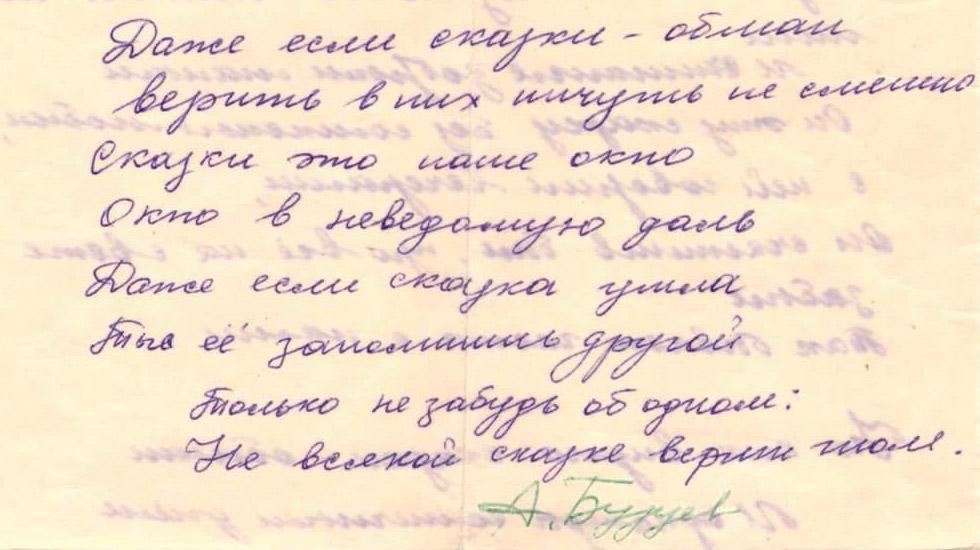 Даже если сказки - обман
верить в них ничуть не смешно
Сказки это наше окно
Окно в неведомую даль
Даже если сказка ушла
Ты её запомнишь другой
Только не забудь об одном:
Не всякой сказке верит
А. Бузуев